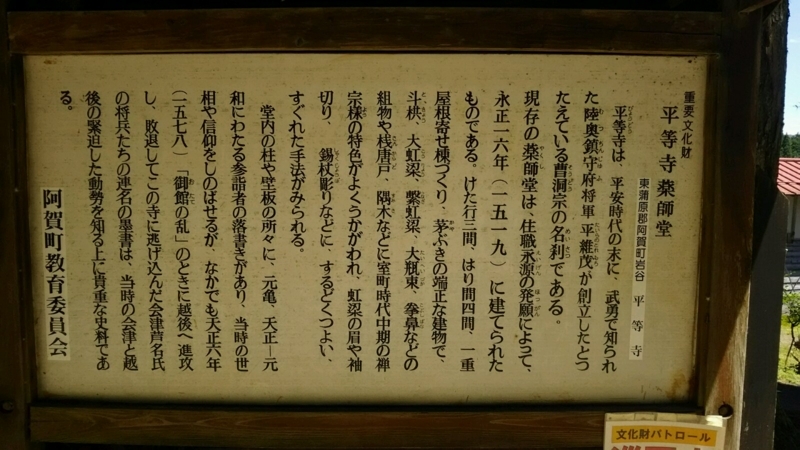 重要文化財
平等寺薬師堂
東蒲原郡阿賀町岩谷　平等寺
平等寺は、平安時代の末に、武勇で知られ
た陸奥鎮守府将軍 平維茂が創立したとつ
たえている曹洞宗の名刹である。
現存の薬師堂は、住職永源の発願によって、
永正一六年（一五一九）に建てられた
ものである。けた行三間、はり間四間、一重
屋根寄せ棟づくり、茅ぶきの端正な建物で、
斗栱、大虹梁、繋虹梁、大瓶束、拳鼻などの
組物や桟唐戸、隅木などに室町時代中期の禅
宗様の特色がよくうかがわれ、虹梁の眉や袖
切り、錫杖彫りなどに、するどくつよい、
すぐれた手法がみられる。
堂内の柱や壁板の所々に、元亀、天正―元
和にわたる参詣者の落書きがあり、当時の世
相や信仰をしのばせるが、なかでも天正六年
（一五七八）「御館の乱」のときに越後へ進攻
し、敗退してこの寺に逃げ込んだ会津芦名氏
の将兵たちの連名の墨書は、当時の会津と越
後の緊迫した動勢を知る上に貴重な史料であ
る。
阿賀町教育委員会
文化財パトロール